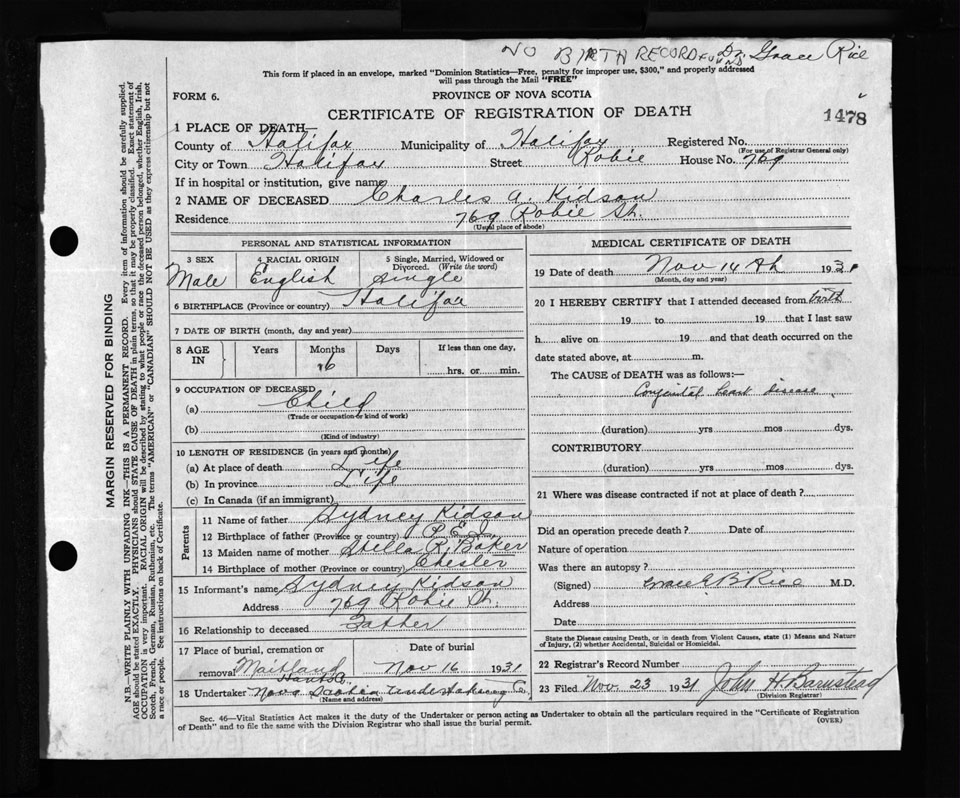 NO BIRTH RECORD FOUND Dr. Grace Rice
This form if placed in an envelope, marked "Dominion Statistics—Free, penalty for improper use, $300," and properly addressed
will pass through the Mail "FREE"
FORM 6.
PROVINCE OF NOVA SCOTIA
CERTIFICATE OF REGISTRATION OF DEATH
1478
1 PLACE OF DEATH—
County of Halifax Municipality of Halifax Registered No.
(For use of Registrar General only)
City or Town Halifax Street Robie House No. 769
If in hospital or institution, give name
2 NAME OF DECEASED Charles A. Kidson
Residence 769 Robie St.
(Usual place of abode)
PERSONAL AND STATISTICAL INFORMATION
3 SEX 4 RACIAL ORIGIN 5 Single, Married, Widowed or
Divorced. (Write the word)
Male English single
6 BIRTHPLACE (Province or country) Halifax
7 DATE OF BIRTH (month, day and year)
8 AGE IN Years Months Days If less than one day,
16 hrs. or min.
9 OCCUPATION OF DECEASED
(a) Child
(Trade or occupation or kind of work)
(b)
(Kind of industry)
10 LENGTH OF RESIDENCE (in years and months)
(a) At place of death Life
(b) In province Life
(c) In Canada (if an immigrant)
Parents
11 Name of father Sydney Kidson
12 Birthplace of father (Province or country) P.E.I.
13 Maiden name of mother Stella R. Baker
14 Birthplace of mother (Province or country) Chester
15 Informant's name Sydney Kidson
Address 769 Robie St.
16 Relationship to deceased Father
17 Place of burial, cremation or Date of burial
removal Maitland Nov 16 1931
Hants Co.
18 Undertaker Nova Scotia Undertaking Co.
(Name and address)
MEDICAL CERTIFICATE OF DEATH
19 Date of death Nov 14th 1931
(Month, day and year)
20 I HEREBY CERTIFY that I attended deceased from birth
19 to 19 that I last saw
h alive on 19 and that death occurred on the
date stated above, at m.
The CAUSE of DEATH was as follows:—
Congenital heart disease
(duration) yrs mos dys.
CONTRIBUTORY
(duration) yrs mos dys.
21 Where was disease contracted if not at place of death?
Did an operation precede death? Date of
Nature of operation
Was there an autopsy?
(Signed) Grace E B Rice M.D.
Address
Date
State the Disease causing Death, or in death from Violent Causes, state (1) Means and Nature
of Injury, (2) whether Accidental, Suicidal or Homicidal.
22 Registrar's Record Number
23 Filed Nov 23 1931 John H. Barnstead
(Division Registrar)
Sec. 46—Vital Statistics Act makes it the duty of the Undertaker or person acting as Undertaker to obtain all the particulars required in the "Certificate of Registration
of Death" and to file the same with the Division Registrar who shall issue the burial permit.
(OVER)
MARGIN RESERVED FOR BINDING
N.B.—WRITE PLAINLY WITH UNFADING INK—THIS IS A PERMANENT RECORD. Every item of information should be carefully supplied.
AGE should be stated EXACTLY. PHYSICIANS should STATE CAUSE OF DEATH in plain terms, so that it may be properly classified. Exact statement of
OCCUPATION is very important. RACIAL ORIGIN will be described by stating to what people or race the deceased person belonged, whether English, Irish,
Scotch, French, German, Russian, Ruthenian, etc. The terms "AMERICAN" or "CANADIAN" SHOULD NOT BE USED as they express citizenship but not
a race or people. See instructions on back of Certificate.